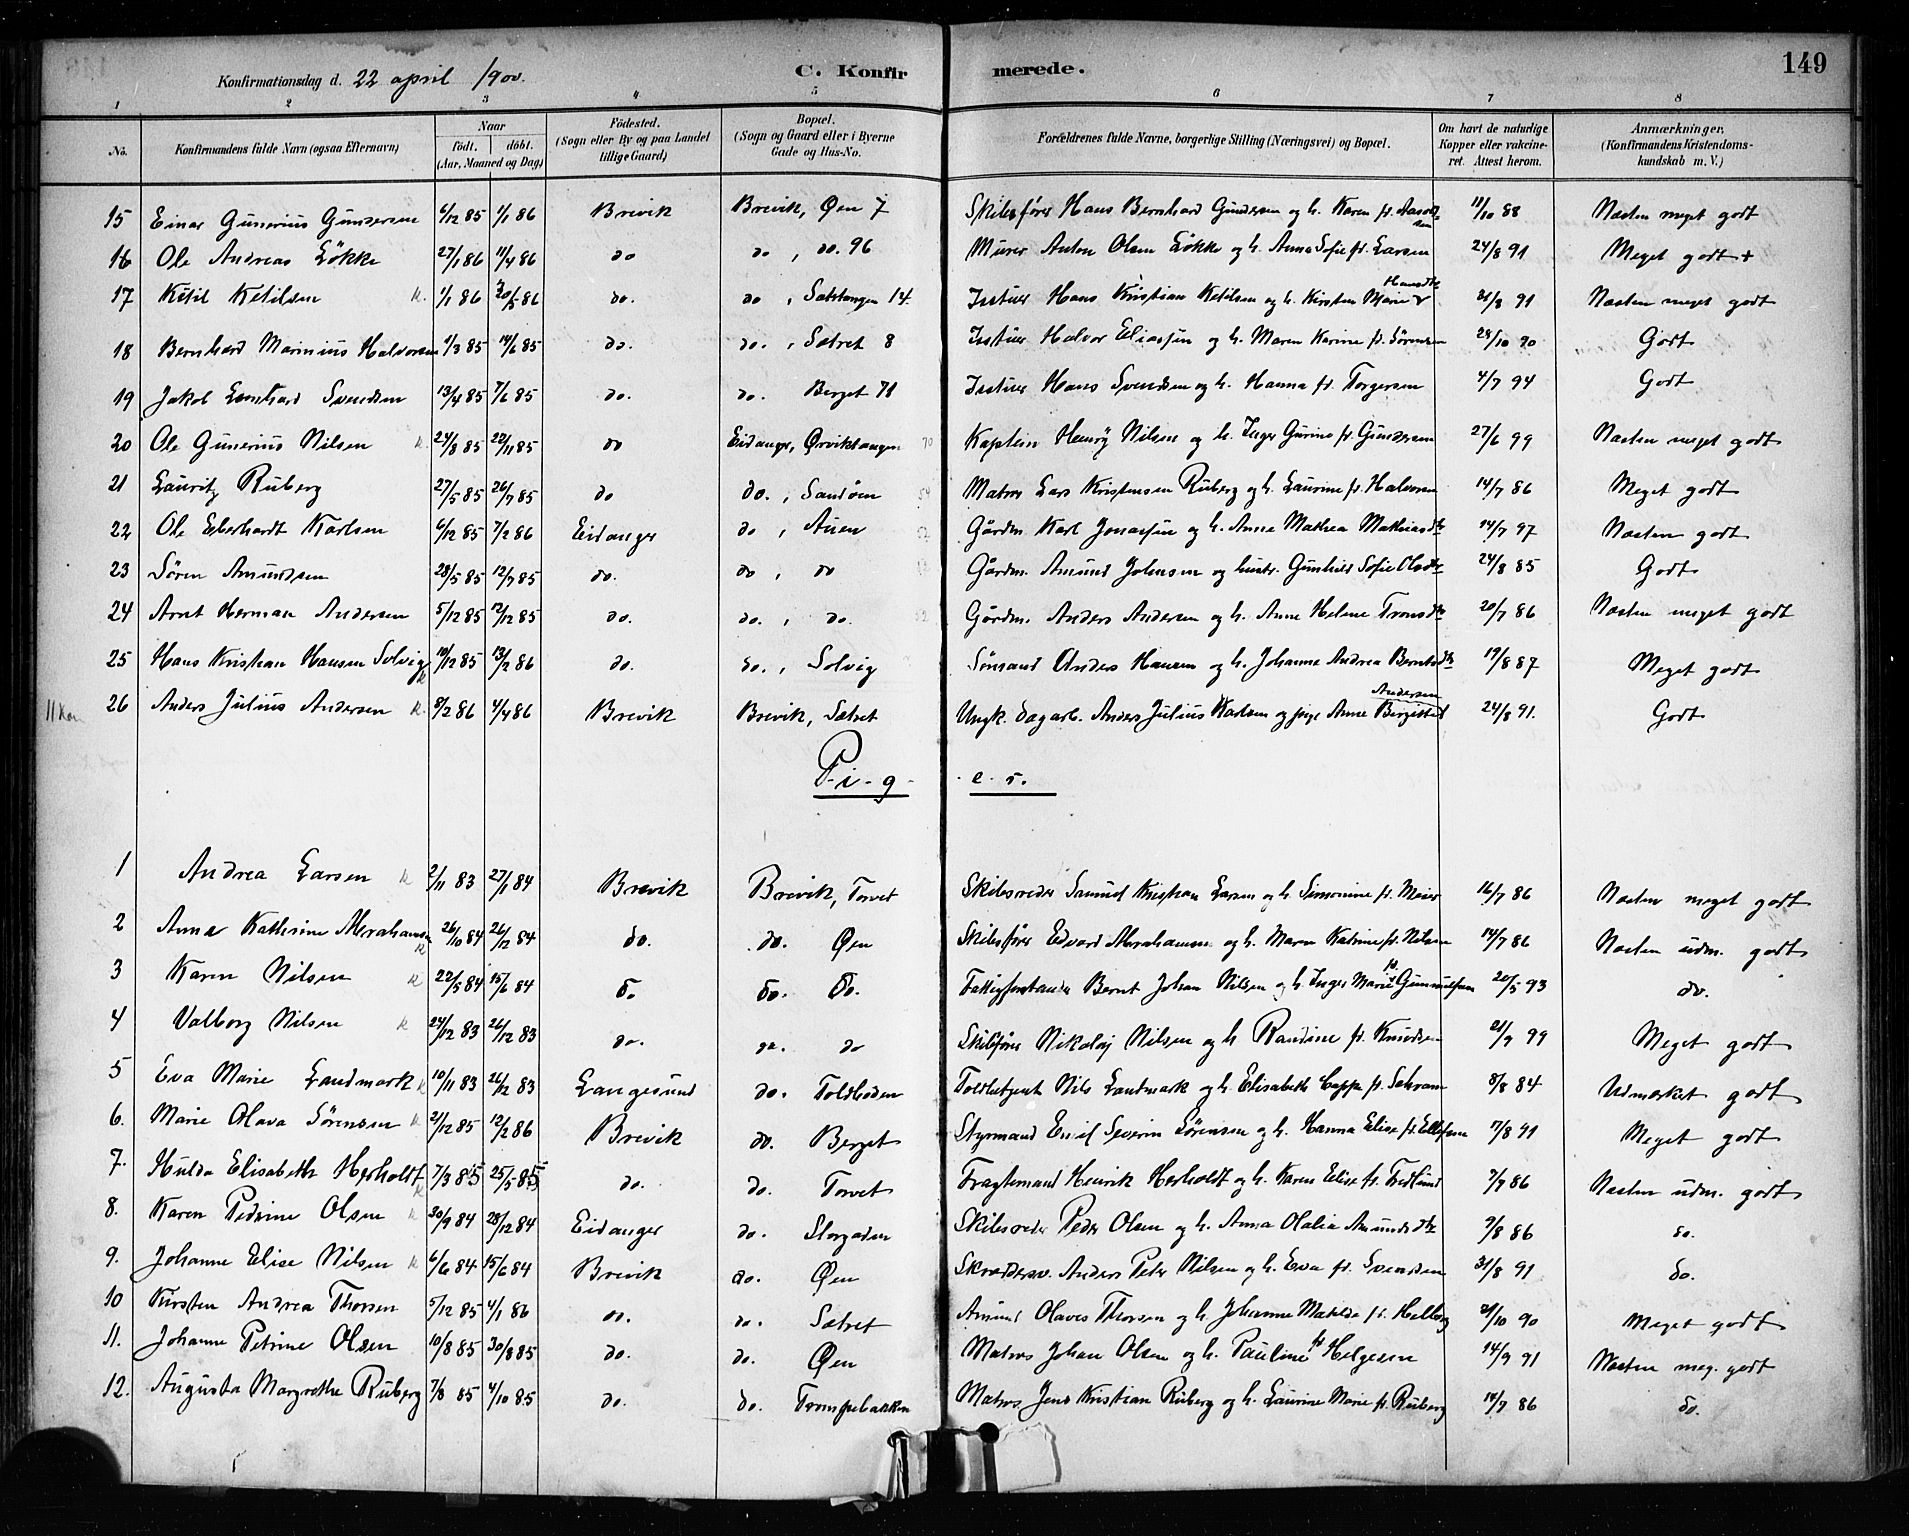 149
Konfirmationsdag d. 22 april 1900.
C. Konfirmerede.
1 2 3 4 5 6 7 8
No. Konfirmandens fulde Navn (ogsaa Efternavn) Naar födt. döbt. (Aar, Maaned og Dag) Födested. (Sogn eller By og paa Landet tillige Gaard) Bopæl. (Sogn og Gaard eller i Byerne Gade og Hus-No. Forældrenes fulde Navne, borgerlige Stilling (Næringsvei) og Bopæl. Om havt de naturlige Kopper eller vakcineret. Attest herom. Anmærkninger. (Konfirmandens Kristendomskundskab m. V.)
15 Einar Gunerius Gundersen 6/12 85 1/1 86 Brevik Brevik, Øen 7 Skibsfører Hans Bernhard Gundersen og h. Karen f. 11/10 88 Næsten meget godt
16 Ole Andreas Løkke 27/1 86 11/4 86 do do, do. 96 Murer Anton Olsen Løkke og h. Anna Sofie f. Larsen 24/8 91 Meget godt +
17 Ketil Ketilsen k. 1/1 86 30/5 86 do. do, Sætstangen 14. Isstuer Hans Kristian Ketilsen og h. Kirsten Marie Hansdtr 91 Næsten meget godt
18 Bernhard Marinius Halvorsen 1/3 85 14/6 85 do. do., Sætret 8 Isstuer Halvor Eliassen og h. Maren Karine f. Sørensen 28/10 90 Godt
19 Jakob Svendsen 13/4 85 7/6 85 do. do. Berget 71 Isstuer Hans Svendsen og h. Hanna f. Torgersen 4/7 94 Godt
20 Ole Gunerius Nilsen k. 24/8 85 22/11 85 do Eidanger, Ørviktangen 70 Kaptein Henry Nilsen og h. Inger Gurine f. Gundersen 27/6 99 Næsten meget godt
21 Lauritz Ruberg 27/5 85 26/7 85 do do., Sandøen Matros Lars Kristensen Ruberg og h. Laurine f. Halvorsen 14/7 86 Meget godt
22 Ole Eberhardt Karlsen 6/12 85 7/2 86 Eidanger do, Auen Gårdm. Karl Jonassen og h. Anne Mathea Mathiasdtr 14/7 97 Næsten godt
23 Sören Amundsen 28/5 85 12/7 85 do. do, do Gårdm. Amund Johnsen og hustr. Gunhild Sofie Olsdtr 24/8 85 Godt
24 Arnt Herman Andersen 5/12 85 12/12 85 do. do., do. Gårdm. Anders Andersen og h. Anne Helene Tronsdtr 20/7 86 Næsten meget godt
25 Hans Kristian Hansen Solvig k 10/12 85 13/2 86 do. do., Solvig Sömand Anders Hansen og h. Johanne Andrea Berntsdtr 19/8 87 Meget godt
26 Anders Julius Andersen k. 8/2 86 4/4 86 Brevik Brevik, Sætret Ungk. dagarb. Anders Julius Karlsen og pige Anne Bergitte Andersen 24/8 91. Godt
P-i-g-e-r.
1 Andrea Larsen k 2/11 83 27/1 84 Brevik Brevik, Torvet Skibsreder Samuel Kristian Larsen og h. Simonine f. Meier 16/7 86 Næsten meget godt
2 Anna Kathrine Abrahamsen k 26/10 84 26/12 84 do. do. Øen Skibsfører Edvard Abrahamsen og h. Maren Katrine f. Nilsen 14/7 86 Næsten udm. godt
3 Karen Nilsen k 22/5 84 15/6 84 do do. do. Fattigforstander Bernt Johan Nilsen og h. Inger Marie f. Gunnulfsen 20/5 93 do.
4 Valborg Nilsen k 24/12 83 26/12 83 do. do. do Skibsfører Nikolaj Nilsen og h Randine f. Knudsen 21/9 99 Meget godt
5 Eva Marie Landmark k 10/11 83 26/12 83 Langesund do. Toldboden Toldbetjent Nils Landmark og h. Elisabeth Cappe f. Schram 8/8 84 Udmærket godt
6. Marie Olava Sörensen k 21/12 85 12/2 86 Brevik do. Berget Styrmand Emil Severin Sörensen og h. Hanna Elise f. Ellefsen 17/8 91 Meget godt
7. Hulda Elisabeth Herholdt k 7/3 85 25/5 85 do. do. Torvet Fragtemand Henrik Herholdt og h. Karen Elise f. Fredlund 7/7 86 Næsten udm. godt
8. Karen Pedrine Olsen k 30/9 84 28/12 84 Eidanger do. Storgaden Skibsreder Peder Olsen og h. Anna Olalia Amundsdtr 9/8 86 do.
9. Johanne Elise Nilsen k 6/6 84 15/6 84 Brevik do. Øen Skræddersv. Anders Peter Nilsen og h. Eva f. Svendsen 31/8 91 do.
10 Kirsten Andrea Thorsen 5/12 85 4/1 86 do. do. Sætret Amund Olaves Thorsen og h. Johanne Matilde f. Helberg 21/10 90 Meget godt
11. Johanne Petrine Olsen 10/8 85 30/8 85 do. do. Øen Matros Johan Olsen og h. Pauline f. Helgesen 14/9 91 Næsten meg. godt
12. Augusta Margrethe Ruberg 7/8 85 4/10 85 do. do. Trompebakken Matros Jens Kristian Ruberg og h. Laurine Marie f. Ruberg 14/7 86 do.